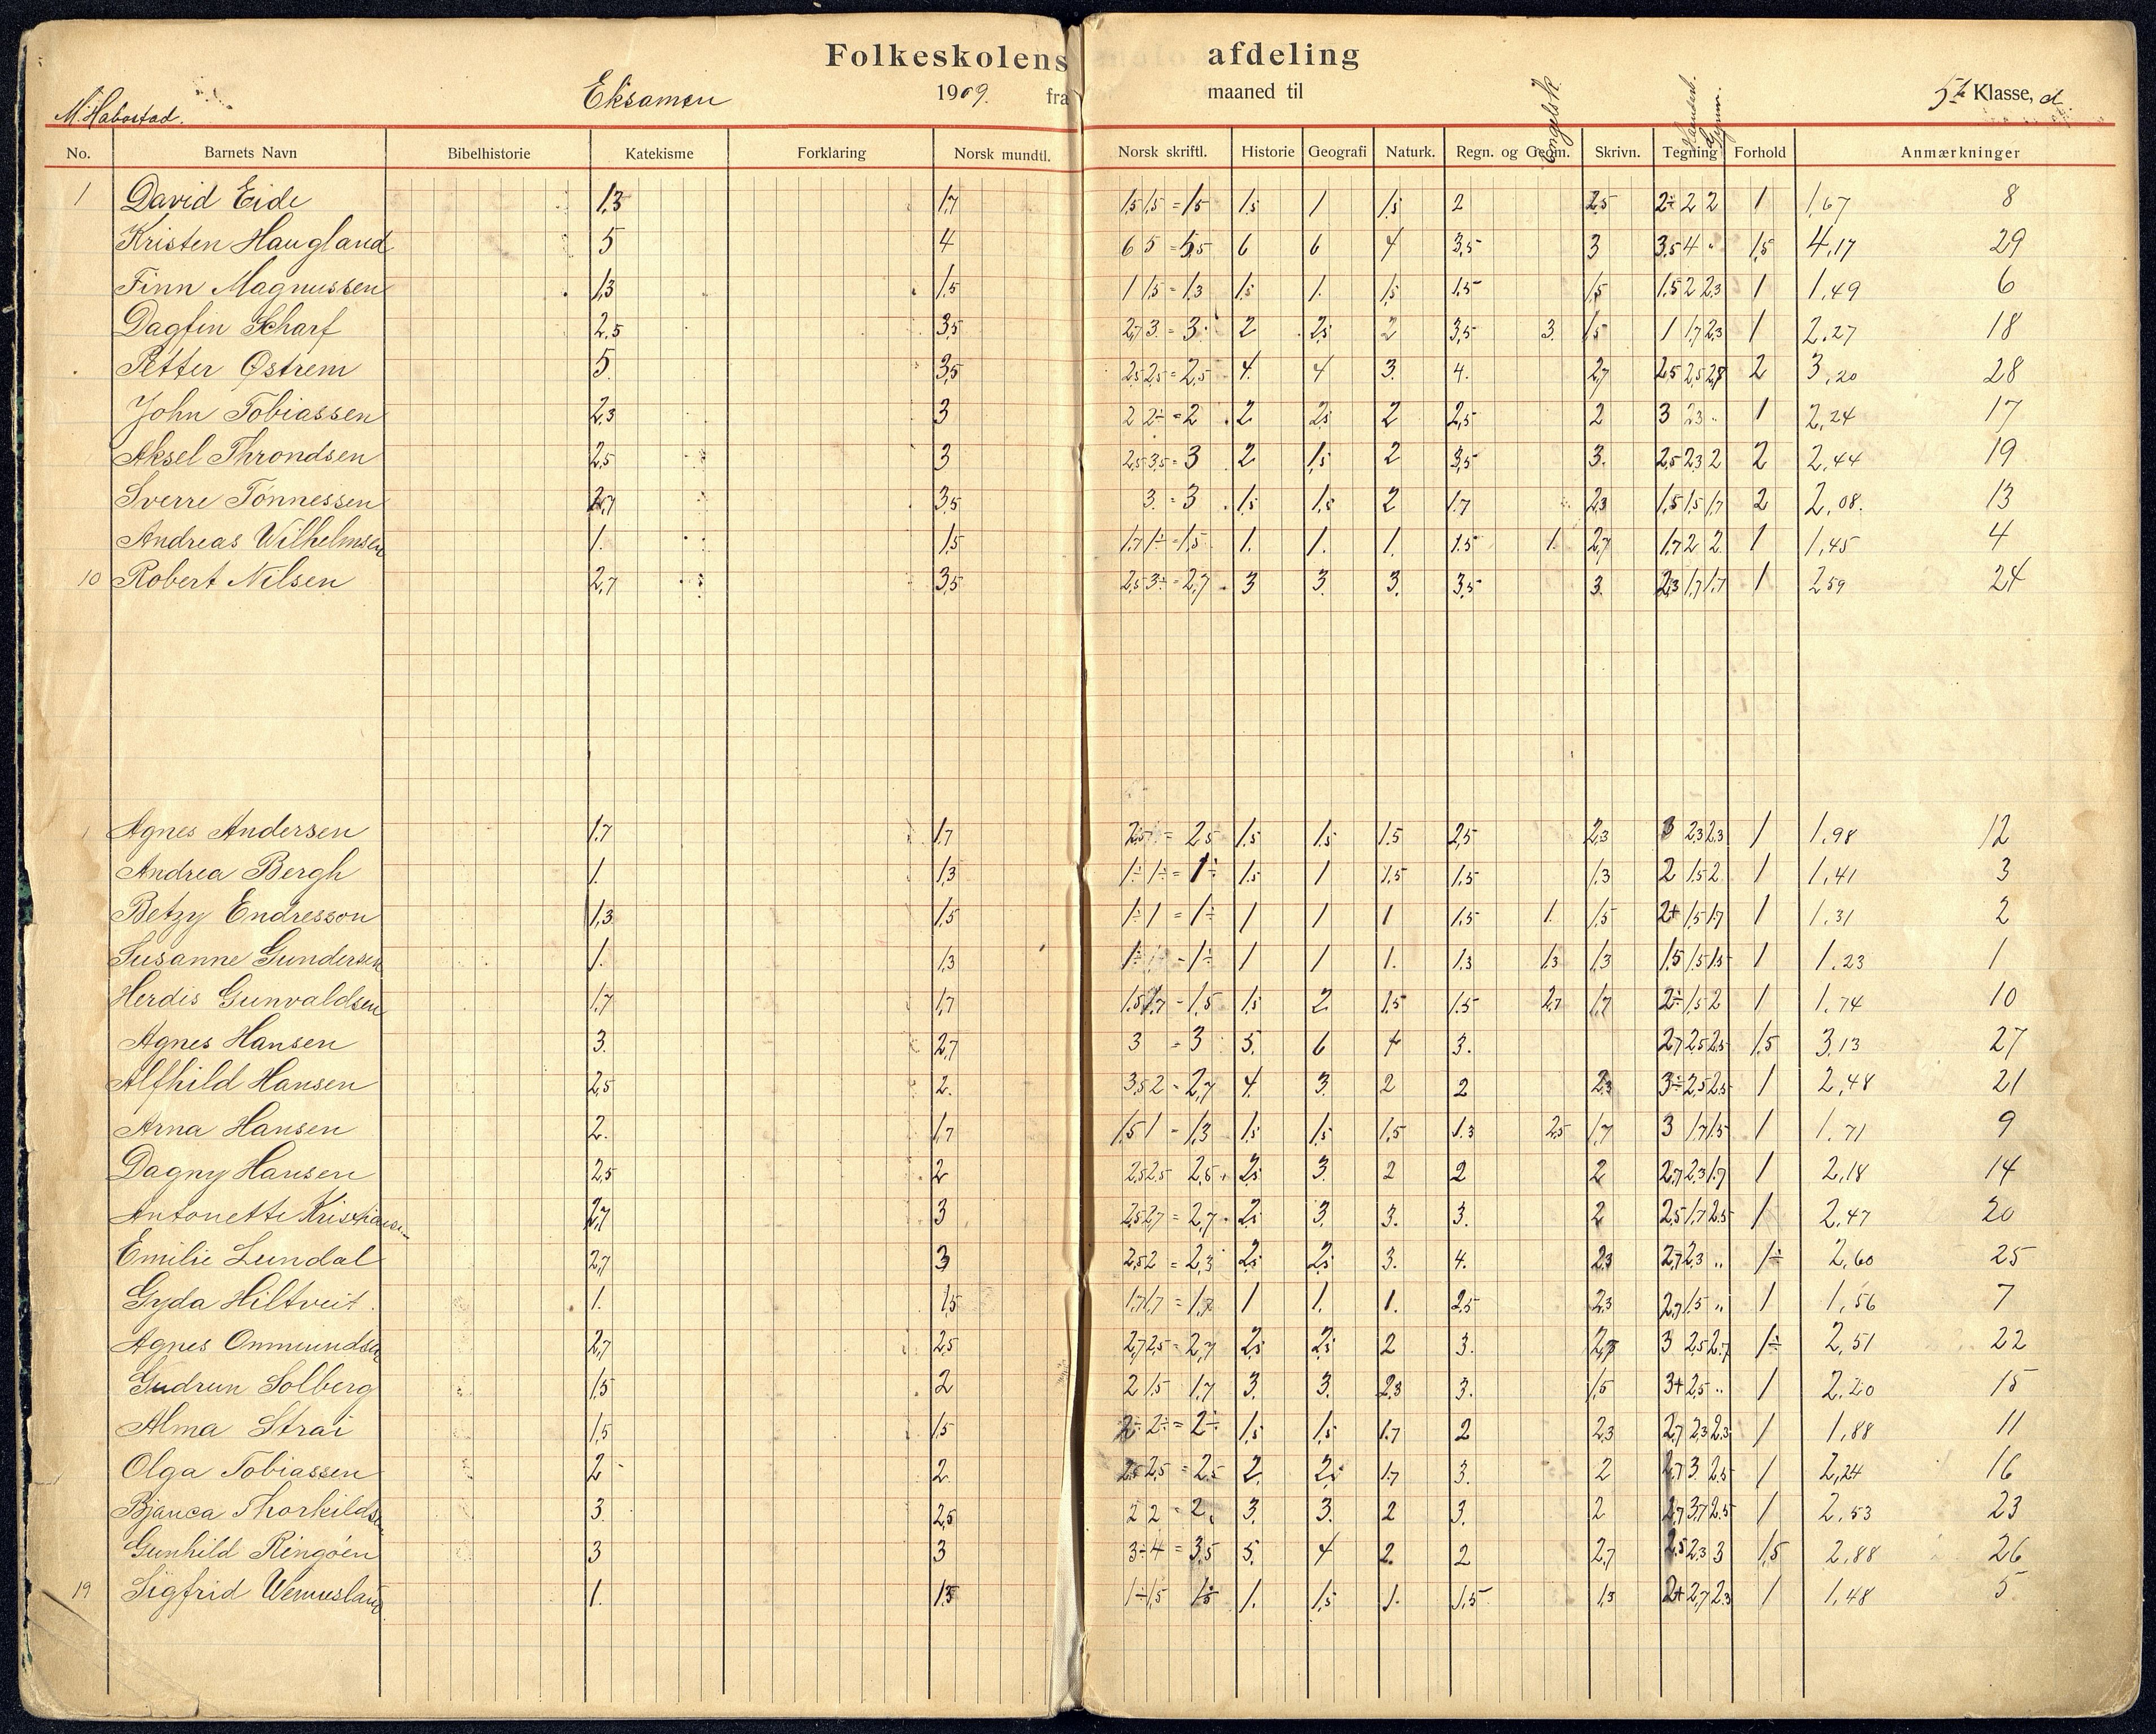 Folkeskolens afdeling
M. Habostad. Eksamen 1909. fra maaned til Engelsk. Gymn. 5te Klasse, d.
No. Barnets Navn Bibelhistorie Katekisme Forklaring Norsk mundtl. Norsk skriftl. Historie Geografi Naturk. Regn. og Geom. Skrivn. Tegning Forhold Anmærkninger
1 David Eide 1,3 1,7 1,5 1,5 = 1,5 1,5 1 1,5 2 2,5 2÷ 2 2 1 1,67 8
Kristen Haugland 5 4 6 5 = 5,5 6 6 4 3,5 3 3,5 4 " 1,5 4,17 29
Finn Magnussen 1,3 1,5 1 1,5 = 1,3 1,5 1. 1,5 1,5 1,5 1,5 2 2,3 1 1,49 6
Dagfin Scharf 2,5 3,5 2,7 3 = 3 2 2,5 2 3,5 3. 1,5 1 1,7 2,3 1 2.27 18
Petter Østrem 5 3,5 2,5 2,5 = 2,5 4. 4 3. 4. 2,7 2,5 2,5 2,8 2 3,20 28
John Tobiassen 2,3 3 2 2÷ = 2 2 2,5 2 2,5 2 3 2,3 " 1 2,24 17
Aksel Throndsen 2,5 3 2,5 3,5 = 3 2 1,5 2 3,5 3. 2,5 2,3 2 2 2,44 19
Sverre Tønnessen 2,7 3,5 3 = 3 1,5 1,5 2 1.7 2,3 1,5 1,5 1,7 2 2,08. 13
Andreas Wilhelmsen 1. 1,5 1,7 1÷ = 1,5 1. 1. 1. 1.5 1. 2,7 1,7 2 2 1 1,45 4
10 Robert Nilsen 2,7 3,5 2,5 3÷ = 2,7 3 3. 3. 3,5 3. 2,3 1,7 1,7 1 2 59 24
1 Agnes Andersen 1.7 1,7 2,5 = 2,5 1.5 1,5 1.5 2,5 2,3 3 2,3 2,3 1 1.98 12
Andrea Bergh 1. 1,3 1÷ 1÷ = 1÷ 1.5 1 1.5 1.5 1.3 2 1,5 2 1 1,41 3
Betzy Endresson 1,3 1,5 1÷ 1 = 1÷ 1 1 1 1.5 1. 1,5 2+ 1,5 1,7 1 1.31 2
Susanne Gundersen 1. 1,3 1÷ - 1÷ 1 1 1. 1.3 1.3 1,3 1,5 1,5 1,5 1 1.23 1
Herdis Gunvaldsen 1,7 1,7 1.5 1,7 - 1,5 1,5 2 1.5 1.5 2,7 1,7 2÷ 1,5 2 1 1.74 10
Agnes Hansen 3. 2,7 3 = 3 5. 6 4 3. 2,7 2,5 2,5 1,5 3,13 27
Alfhild Hansen 2,5 2. 3,5 2 - 2,7 4. 3. 2 2 2,3 3÷ 2,5 2,5 1 2,48 21
Arna Hansen 2. 1,7 1,5 1 - 1,3 1,5 1,5 1,5 1.3 2,5 1,7 3 1,7 1,5 1 1.71 9
Dagny Hansen 2,5 2 2,5 2,5 2,5 2,5 3. 2 2 2 2,7 2,3 1,7 1 2,18 14
Antonette Kristiansen 2,7 3 2,5 2,7 = 2,7 2,5 3. 3. 3. 2 2,5 1,7 2,5 1 2,47 20
Emilie Lundal 2,7 3 2,5 2 = 2,3 2,5 2,5 3. 4. 2,3 2,7 2,3 " 1÷ 2,60 25
Gyda Hiltveit. 1. 1,5 1,7 1,7 = 1,7 1 1. 1. 2,5 2,3 2,7 1,5 " 1 1,56 7
Agnes Ommundsen 2,7 2,5 2,7 2,5 = 2,7 2,5 2,5 2 3. 2,7 3 2,5 2,7 1÷ 2,51 22
Gudrun Solberg 1,5 2 2 1,5 1,7 3. 3. 2,3 3. 1,5 3+ 2,5 " 1 2.20 15
Alma Strai 1,5 1,5 2÷ 2÷ = 2÷ 1,5 1,5 1.7 2 2,3 2,7 2,3 2,3 1 1,88 11
Olga Tobiassen 2 2. 2,5 2,5 = 2,5 2. 2,5 1.7 3. 2 2,7 3 2,5 1 2,24 16
Bjanca Thorkildsen 3. 2,5 2 2 = 2. 3. 3. 2 3. 2 2,7 3,7 2.5 1 2.53 23
Gunhild Ringöen 3 3 3÷ 4 = 3,5 5. 4 2. 2 2,7 2,5 2,3 3 1,5 2,88 26
19 Sigfrid Wennesland 1. 1.5 1÷ 1,5 1,5 1. 1,5 1. 1,5 1,3 2+ 2,7 2,3 1 1,48 5